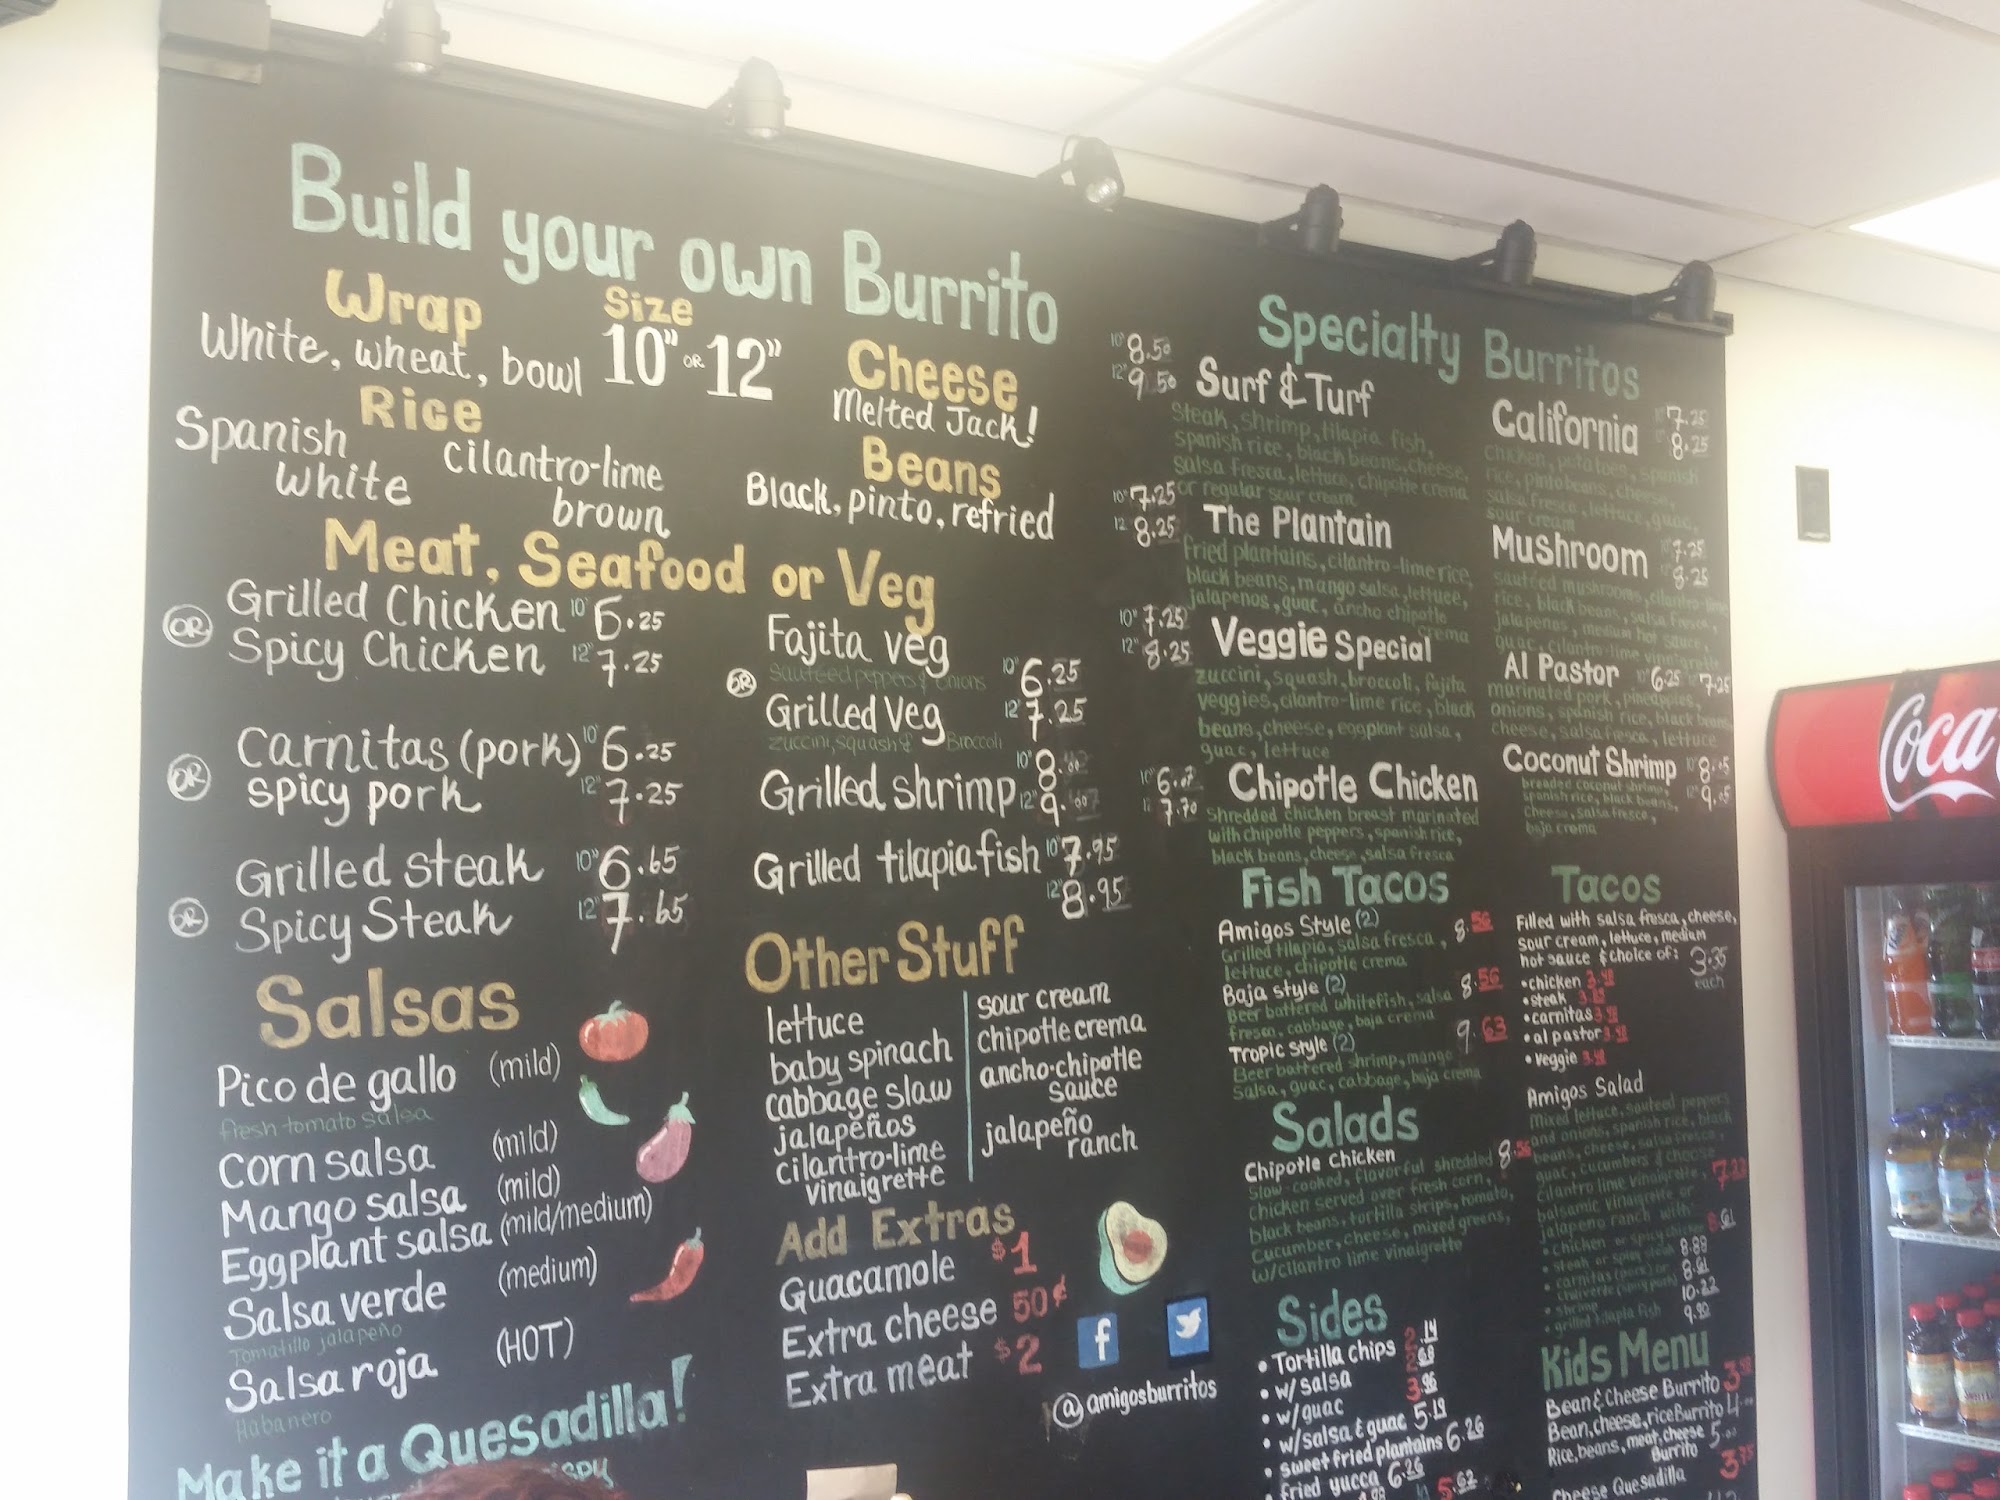 Build your own Burrito
Wrap
White, wheat, bowl
Size
10" OR 12"
Rice
Spanish
white
cilantro-lime
brown
Cheese
Melted Jack!
Beans
Black, pinto, refried
Meat, Seafood or Veg
Grilled Chicken 10" 6.25
OR
Spicy Chicken 12" 7.25
Carnitas (pork) 10" 6.25
OR
spicy pork 12" 7.25
Grilled steak 10" 6.65
OR
Spicy Steak 12" 7.65
Fajita veg
sautéed peppers & onions
10" 6.25
OR
Grilled Veg 12" 7.25
zuccini, squash & Broccoli
Grilled shrimp 10" 8.
12" 9.
Grilled tilapia fish 10" 7.95
12" 8.95
Salsas
Pico de gallo (mild)
fresh tomato salsa
Corn salsa (mild)
Mango salsa (mild)
Eggplant salsa (mild/medium)
Salsa verde (medium)
Tomatillo jalapeño
Salsa roja (HOT)
Habanero
Make it a Quesadilla!
Other Stuff
lettuce
baby spinach
cabbage slaw
jalapeños
cilantro-lime
vinaigrette
sour cream
chipotle crema
ancho-chipotle
sauce
jalapeño
ranch
Add Extras
Guacamole $1
Extra cheese 50¢
Extra meat $2
@amigosburritos
Specialty Burritos
10" 8.50
12" 9.50
Surf & Turf
Steak, shrimp, tilapia fish,
spanish rice, black beans, cheese,
salsa fresca, lettuce, chipotle crema
or regular sour cream
10" 7.25
12" 8.25
The Plantain
fried plantains, cilantro-lime rice,
black beans, mango salsa, lettuce,
jalapenos, guac, ancho chipotle
crema
10" 7.25
12" 8.25
Veggie Special
zuccini, squash, broccoli, fajita
veggies, cilantro-lime rice, black
beans, cheese, eggplant salsa,
guac, lettuce
7.70
Chipotle Chicken
Shredded chicken breast marinated
with chipotle peppers, spanish rice,
black beans, cheese, salsa fresca
California 7.25
8.25
chicken, potatoes, spanish
rice, pinto beans, cheese,
salsa fresce, lettuce, guac,
sour cream
Mushroom 7.25
8.25
sautéed mushrooms, cilantro-lime
rice, black beans, salsa fresca,
jalapenos, medium hot sauce,
guac, cilantro-lime vinaigrette
Al Pastor 10" 6.25 7.25
marinated pork, pineapples,
onions, spanish rice, black beans
cheese, salsa fresca, lettuce
Coconut Shrimp
breaded coconut shrimp,
spanish rice, black beans,
cheese, salsa fresca,
baja crema
Fish Tacos
Amigos Style (2) 8.56
Grilled tilapia, salsa fresca,
lettuce, chipotle crema
Baja style (2) 8.56
Beer battered whitefish, salsa
fresca, cabbage, baja crema
Tropic style (2) 9.63
Beer battered shrimp, mango
salsa, guac, cabbage, baja crema
Tacos
Filled with salsa fresca, cheese,
sour cream, lettuce, medium
hot sauce & choice of: 3.35
each
• chicken
• steak
• carnitas
• al pastor
• veggie
Salads
Chipotle Chicken
Slow-cooked, flavorful shredded
chicken served over fresh corn,
black beans, tortilla strips, tomato,
cucumber, cheese, mixed greens,
w/cilantro lime vinaigrette
Amigos Salad
Mixed lettuce, sauteed peppers
and onions, spanish rice, black
beans, cheese, salsa fresca,
guac, cucumbers & choose
cilantro lime vinaigrette,
balsamic vinaigrette or
jalapeno ranch with:
• chicken or spicy chicken
• steak or spicy steak 8.88
• carnitas (pork) or 8.61
• shrimp 10.22
• grilled tilapia fish
Sides
• Tortilla chips 2.14
• w/salsa
• w/guac
• w/salsa & guac 5.19
• sweet fried plantains 6.26
• fried yucca 6.26
5.62
Kids Menu
Bean & Cheese Burrito
Bean, cheese, rice Burrito
Rice, beans, meat, cheese
Burrito
Cheese Quesadilla 3.75
Coca